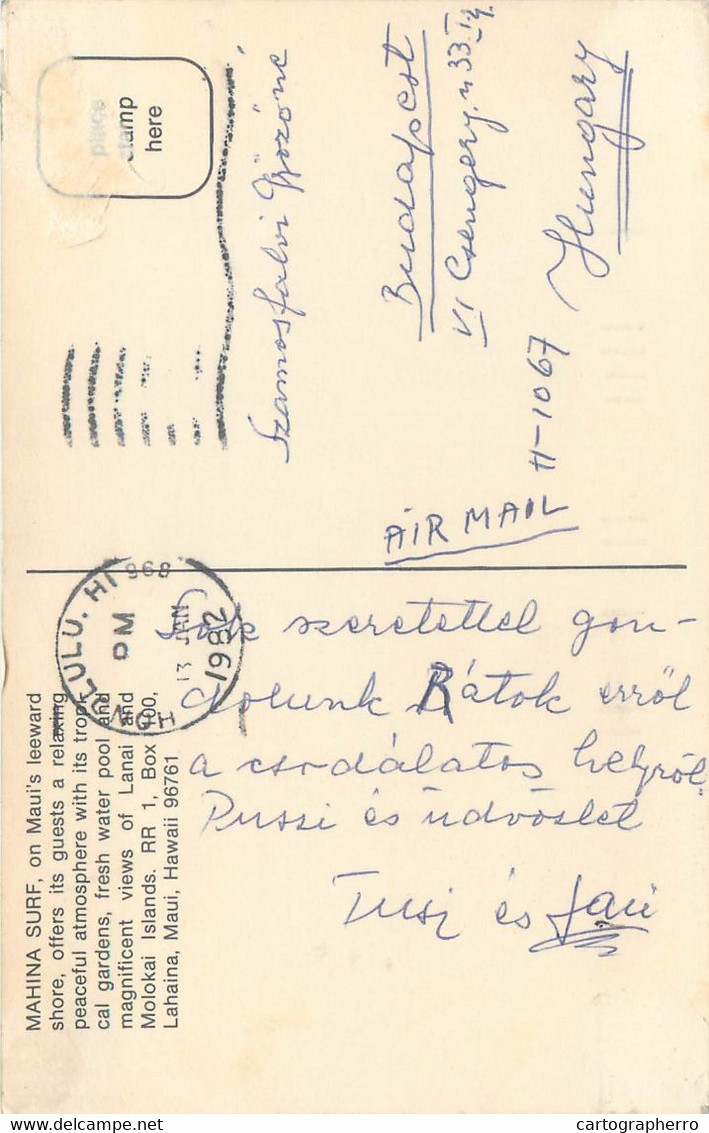 MAHINA SURF, on Maui's leeward
shore, offers its guests a relaxing
peaceful atmosphere with its tropi-
cal gardens, fresh water pool and
magnificent views of Lanai and
Molokai Islands. RR 1, Box 500,
Lahaina, Maui, Hawaii 96761
place
stamp
here
HONOLULU, HI 968
PM
13 JAN
1982
Szamosfalvi Győzőné
Budapest
VI Csengery u 33
H-1067
Hungary
AIR MAIL
Sok szeretettel gon-
dolunk Rátok erről
a csodálatos helyről
Pussi és üdvözlet
Tusi és Jani
delcampe.net
cartographerro